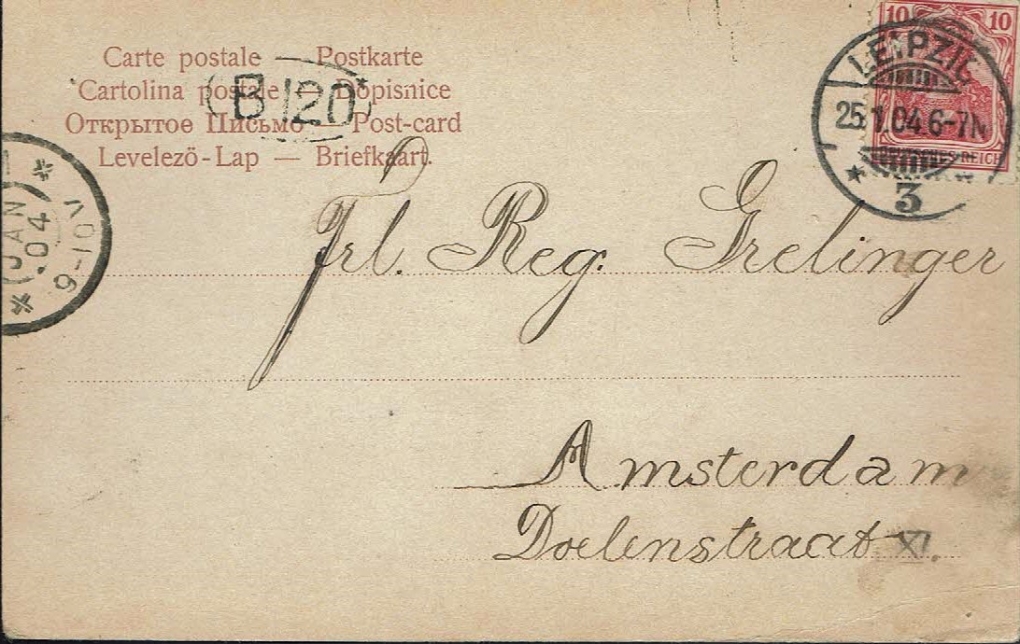 10 10
LEIPZIG
25.1.04 6-7N
DEUTSCHES REICH
3
Carte postale — Postkarte
Cartolina postale — Dopisnice
Открытое Письмо — Post-card
Levelező-Lap — Briefkaart.
B 120
JAN
04
9-10V
Frl. Reg. Grelinger
Amsterdam
Doelenstraat XI.